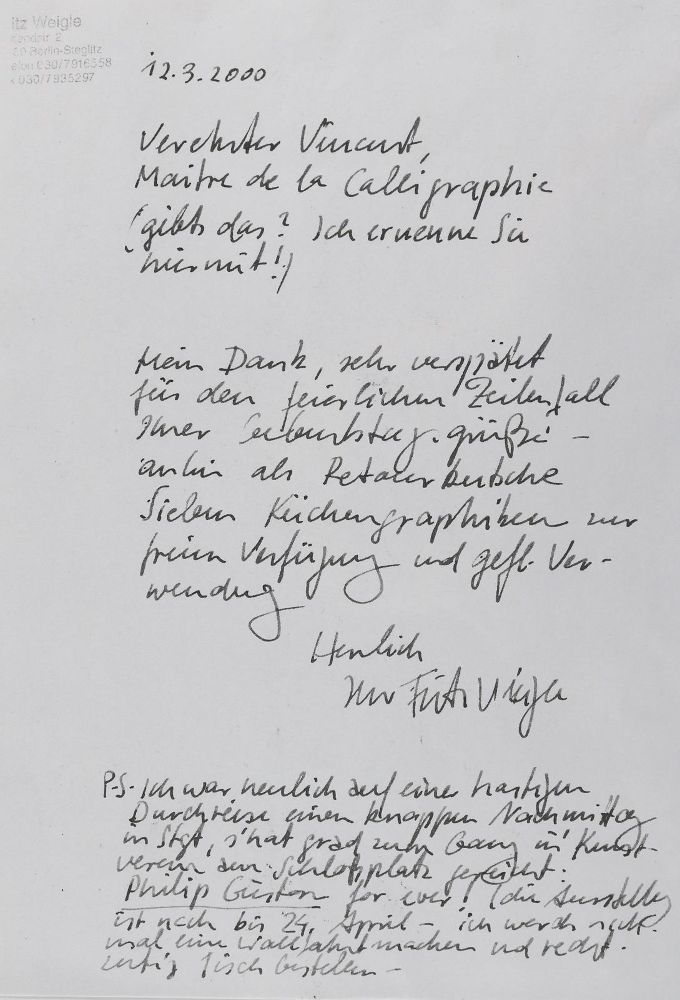 itz Weigle
2
Berlin-Steglitz
030/7916558
030/7935297
12.3.2000
Verehrter Vincent,
Maitre de la Calligraphie
(gibts das? Ich ernenne Sie
hiermit!)
Mein Dank, sehr verspätet
für den feierlichen Zeilenfall
Ihrer Geburtstagsgrüße –
anbei als Retourkutsche
Sieben Küchengraphiken zur
freien Verfügung und gefl. Ver-
wendung
Herzlich
Ihr Fritz Weigle
P.S. Ich war neulich auf einer hastigen
Durchreise einen knappen Nachmittag
in Stgt, s'hat grad zum Gang in'
Kunst-
verein am Schloßplatz gereicht:
Philip Guston for ever! (die Ausstellung
ist noch bis 24. April – ich werde noch
mal eine Wallfahrt machen und recht-
zeitig Tisch bestellen –